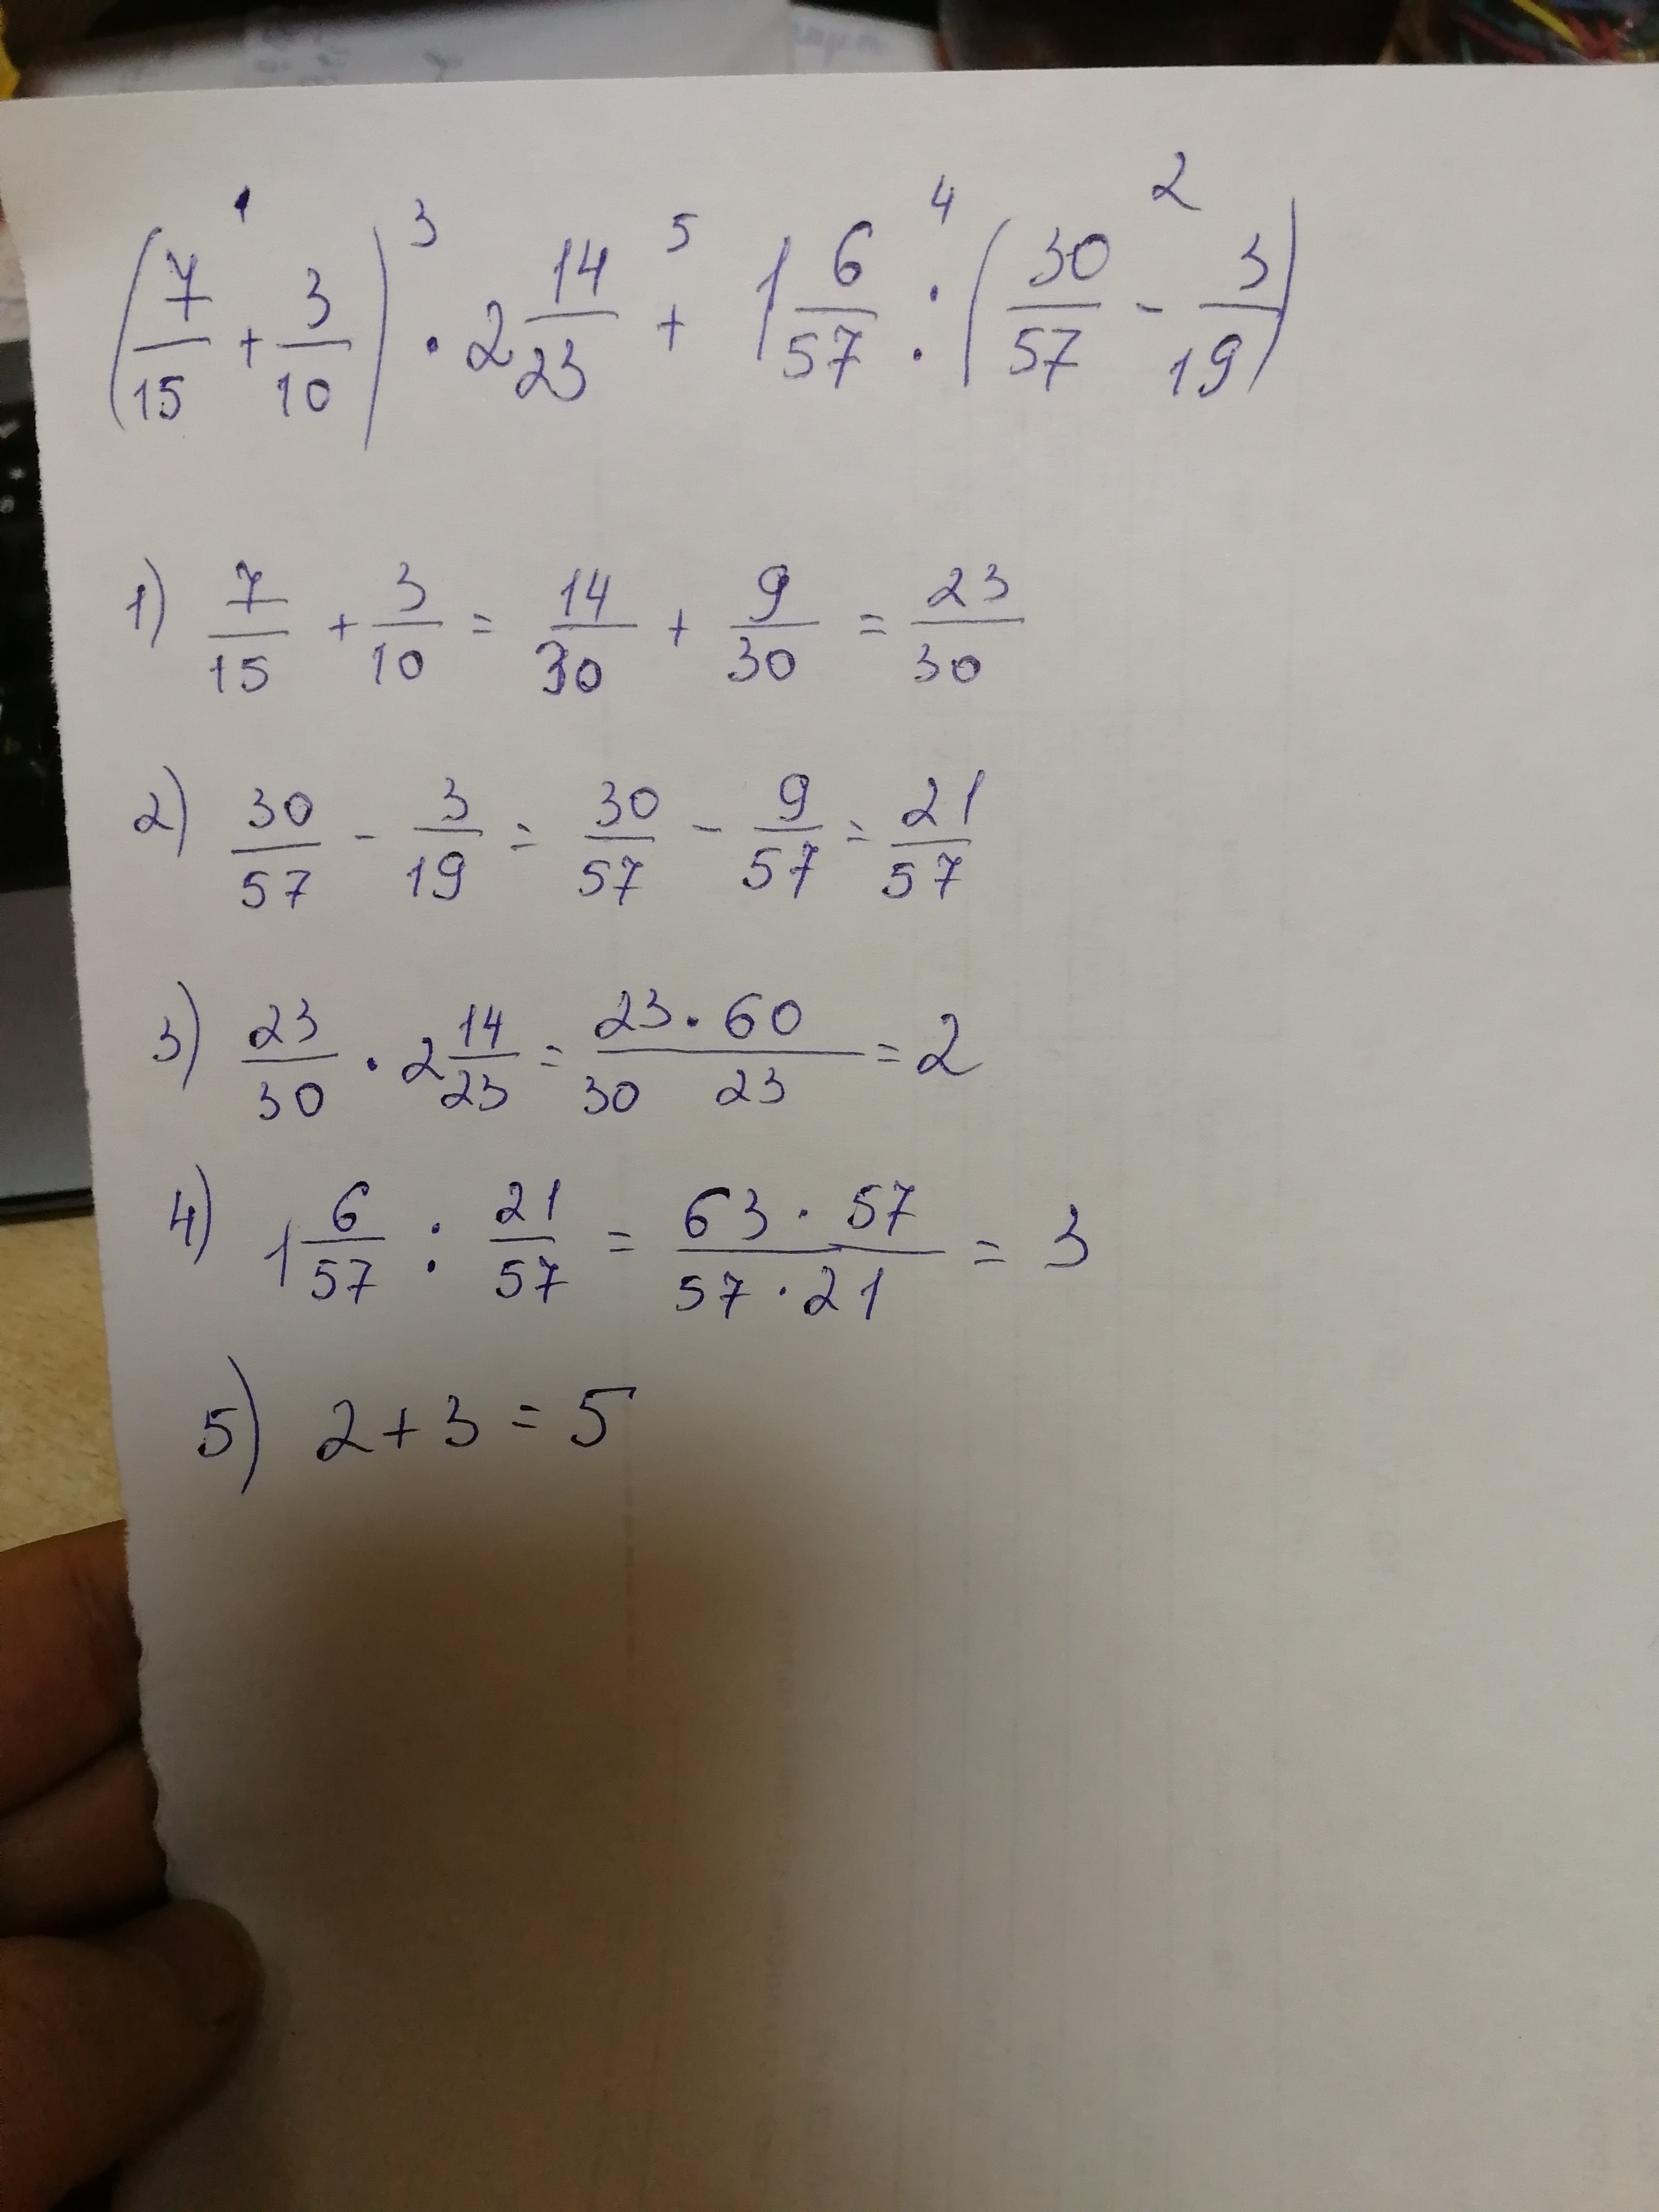 1 3 5 4 2
(7/15 + 3/10) · 2 14/23 + 1 6/57 : (30/57 - 3/19)
1) 7/15 + 3/10 = 14/30 + 9/30 = 23/30
2) 30/57 - 3/19 = 30/57 - 9/57 = 21/57
3) 23/30 · 2 14/23 = 23·60/30 23 = 2
4) 1 6/57 : 21/57 = 63·57/57·21 = 3
5) 2+3=5